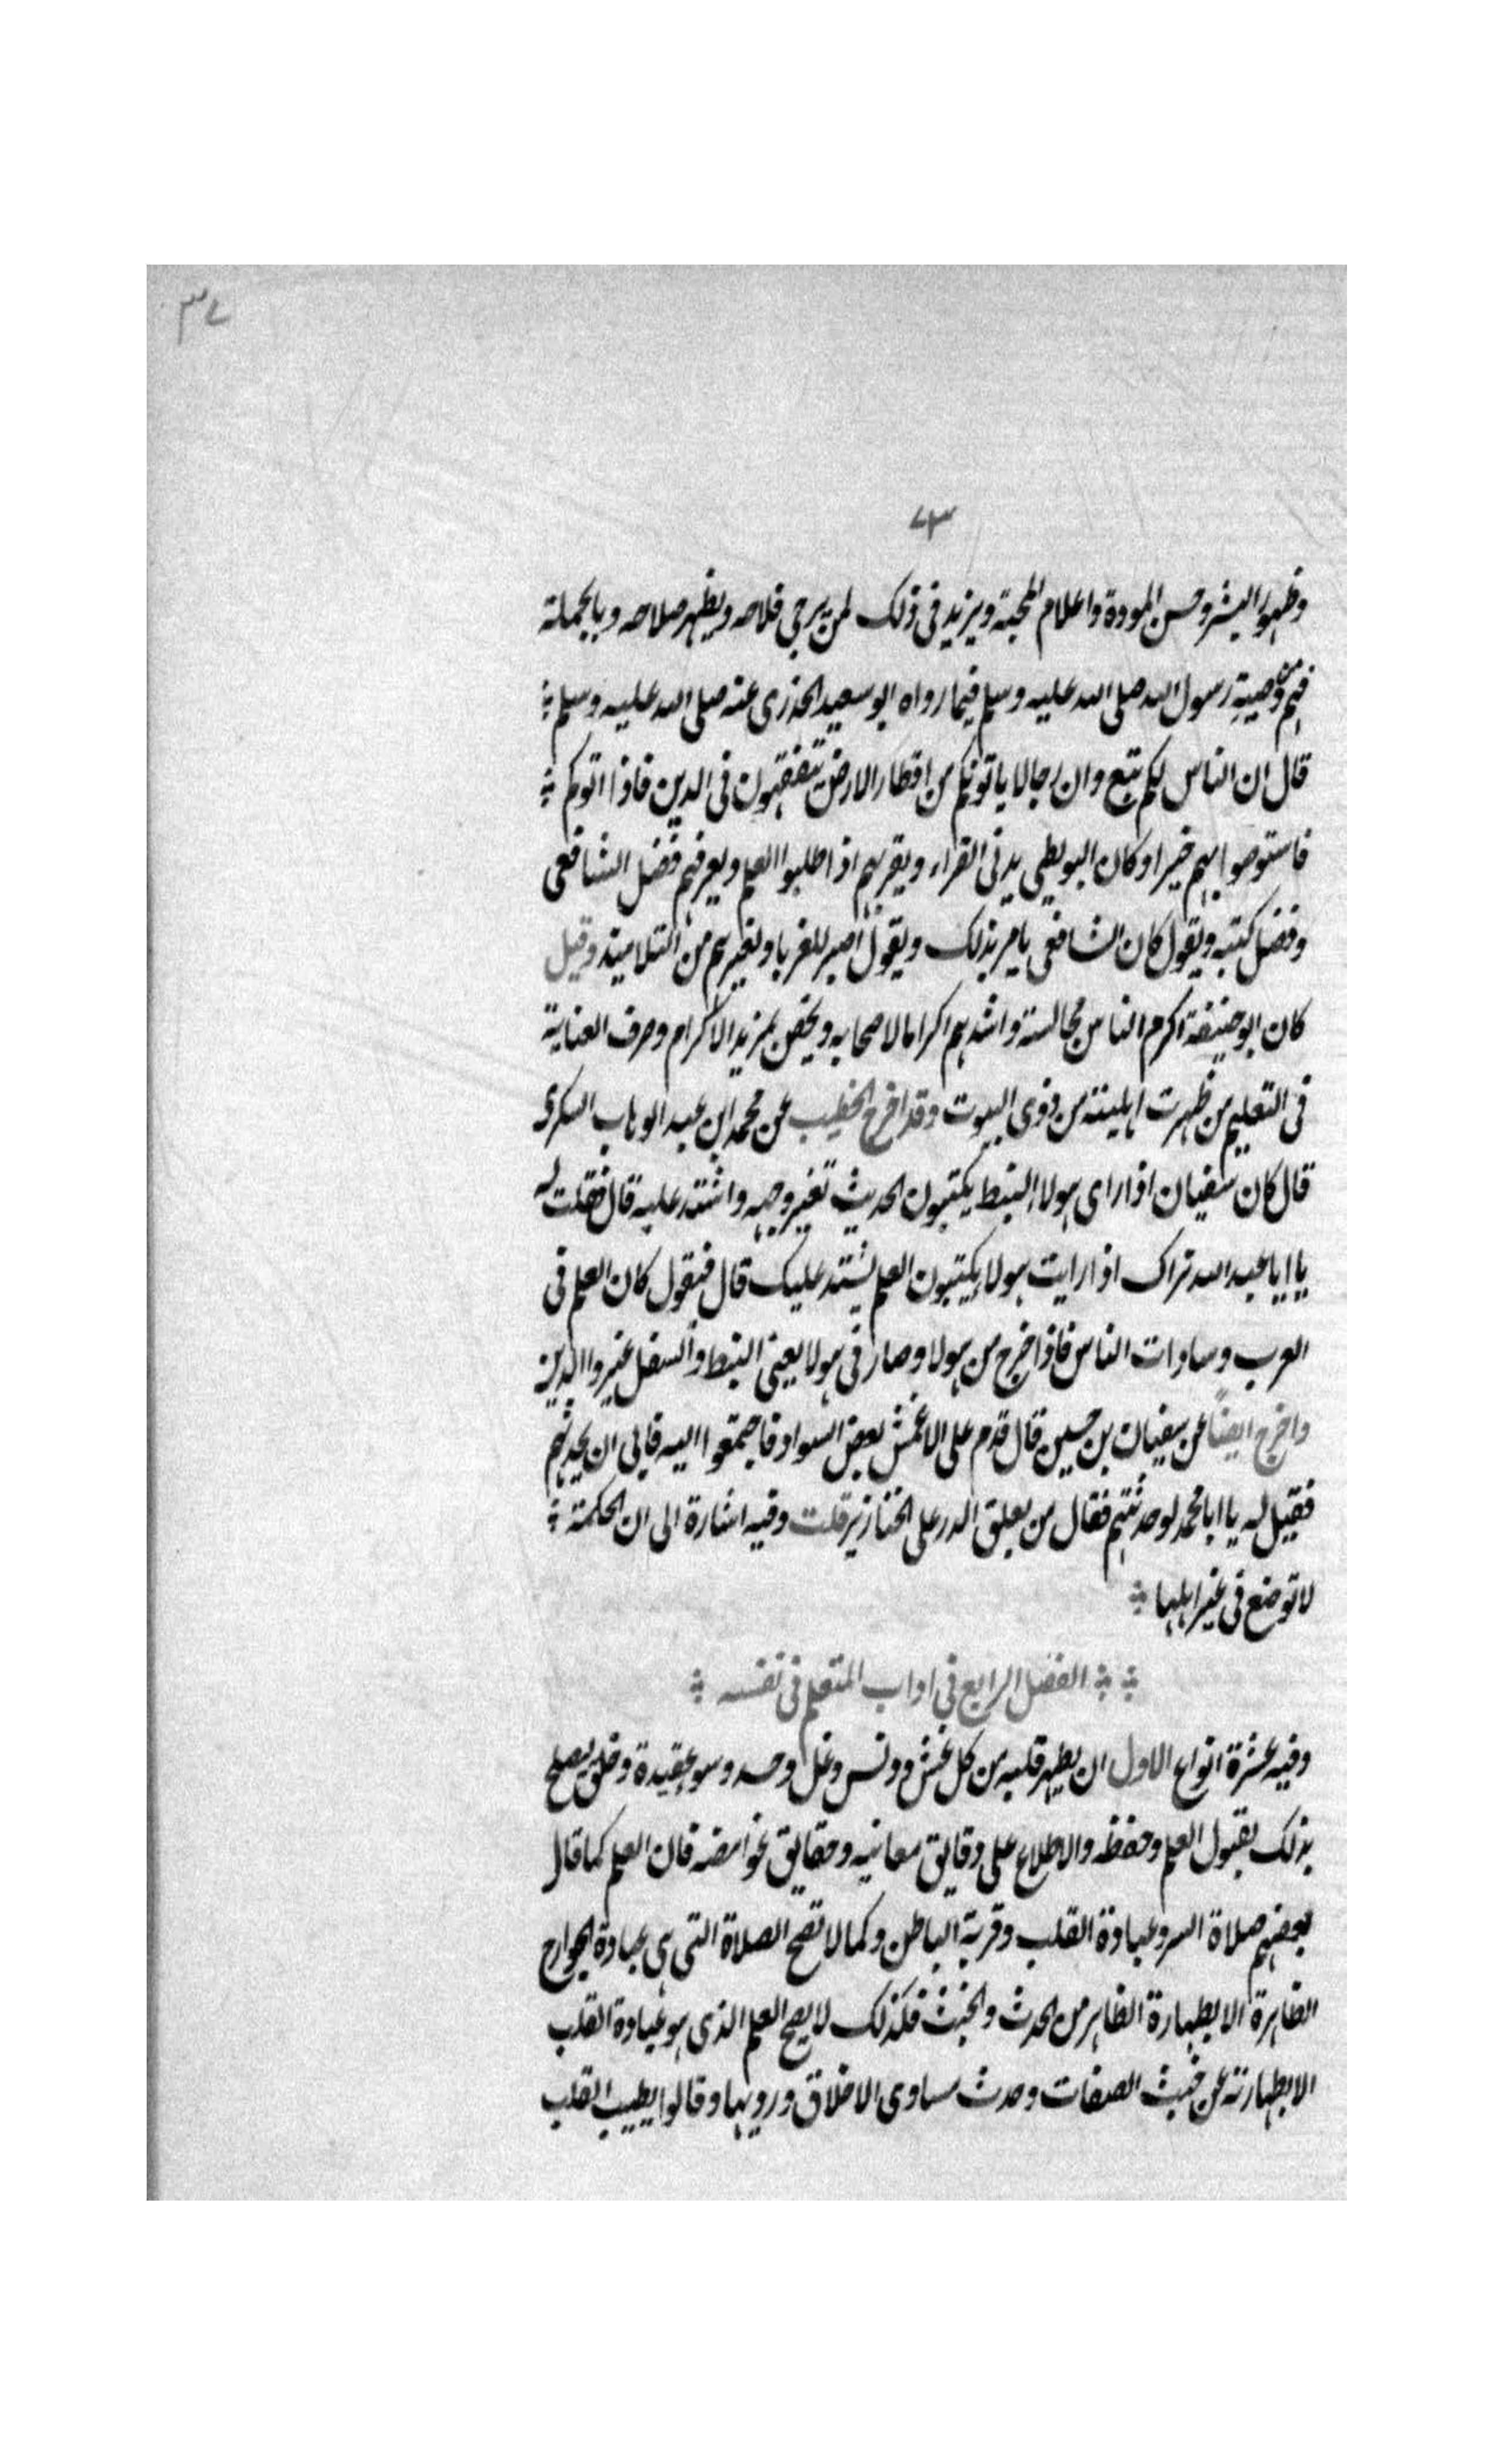 ٣٧
٧٣
وظهور البشر وحسن المودة واعلام المحبة ويزيد فى ذلك لمن يرجى فلاحه ويظهر صلاحه وبالجملة
فهم وصية رسول الله صلى الله عليه وسلم فيما رواه ابو سعيد الخدرى عنه صلى الله عليه وسلم
قال ان الناس لكم تبع وان رجالا ياتونكم من اقطار الارض يتفقهون فى الدين فاذا اتوكم
فاستوصوا بهم خيرا وكان البويطى يدنى القراء ويقربهم اذا طلبوا العلم ويعرفهم فضل الشافعى
وفضل كتبه ويقول كان الشافعى يامر بذلك ويقول اصبر للغربا ولغيرهم من التلاميذ وقيل
كان ابو حنيفة اكرم الناس مجالسة واشدهم اكراما لاصحابه ويخص بمزيد الاكرام وصرف العناية
فى التعليم من ظهرت اهليته من ذوى البيوت وقد اخرج الخطيب عن محمد ابن عبد الوهاب السكرى
قال كان سفيان اذا راى هولاء النبط يكتبون الحديث تغير وجهه واشتد عليه قال فقلت له
يا ابا عبد الله تراك اذا رايت هولا يكتبون العلم يشتد عليك قال فيقول كان العلم فى
العرب وسادات الناس فاذا خرج من هولا وصار فى هولا يعنى النبط والسفل غيروا الدين
واخرج ايضاً عن سفيان بن حسين قال قدم على الاعمش بعض السواد فاجتمعوا اليه فابى ان يحدثهم
فقيل له يا ابا محمد لو حدثتهم فقال من يعلق الدر على الخنازير قلت وفيه اشارة الى ان الحكمة
لا توضع فى غير اهلها
الفصل الرابع فى اداب المتعلم فى نفسه
وفيه عشرة انواع الاول ان يطهر قلبه من كل غش ودنس وغل وحسد وسو عقيدة وخلق ليصلح
بذلك بقبول العلم وحفظه والاطلاع على دقايق معانيه وحقايق غوامضه فان العلم كما قال
بعضهم صلاة السر وعبادة القلب وقربة الباطن وكما لا تصح الصلاة التى هى عبادة الجوارح
الظاهرة الا بطهارة الظاهر من الحدث والخبث فكذلك لا يصح العلم الذى هو عبادة القلب
الا بطهارته عن خبث الصفات وحدث مساوى الاخلاق ورديها وقالوا يطيب القلب